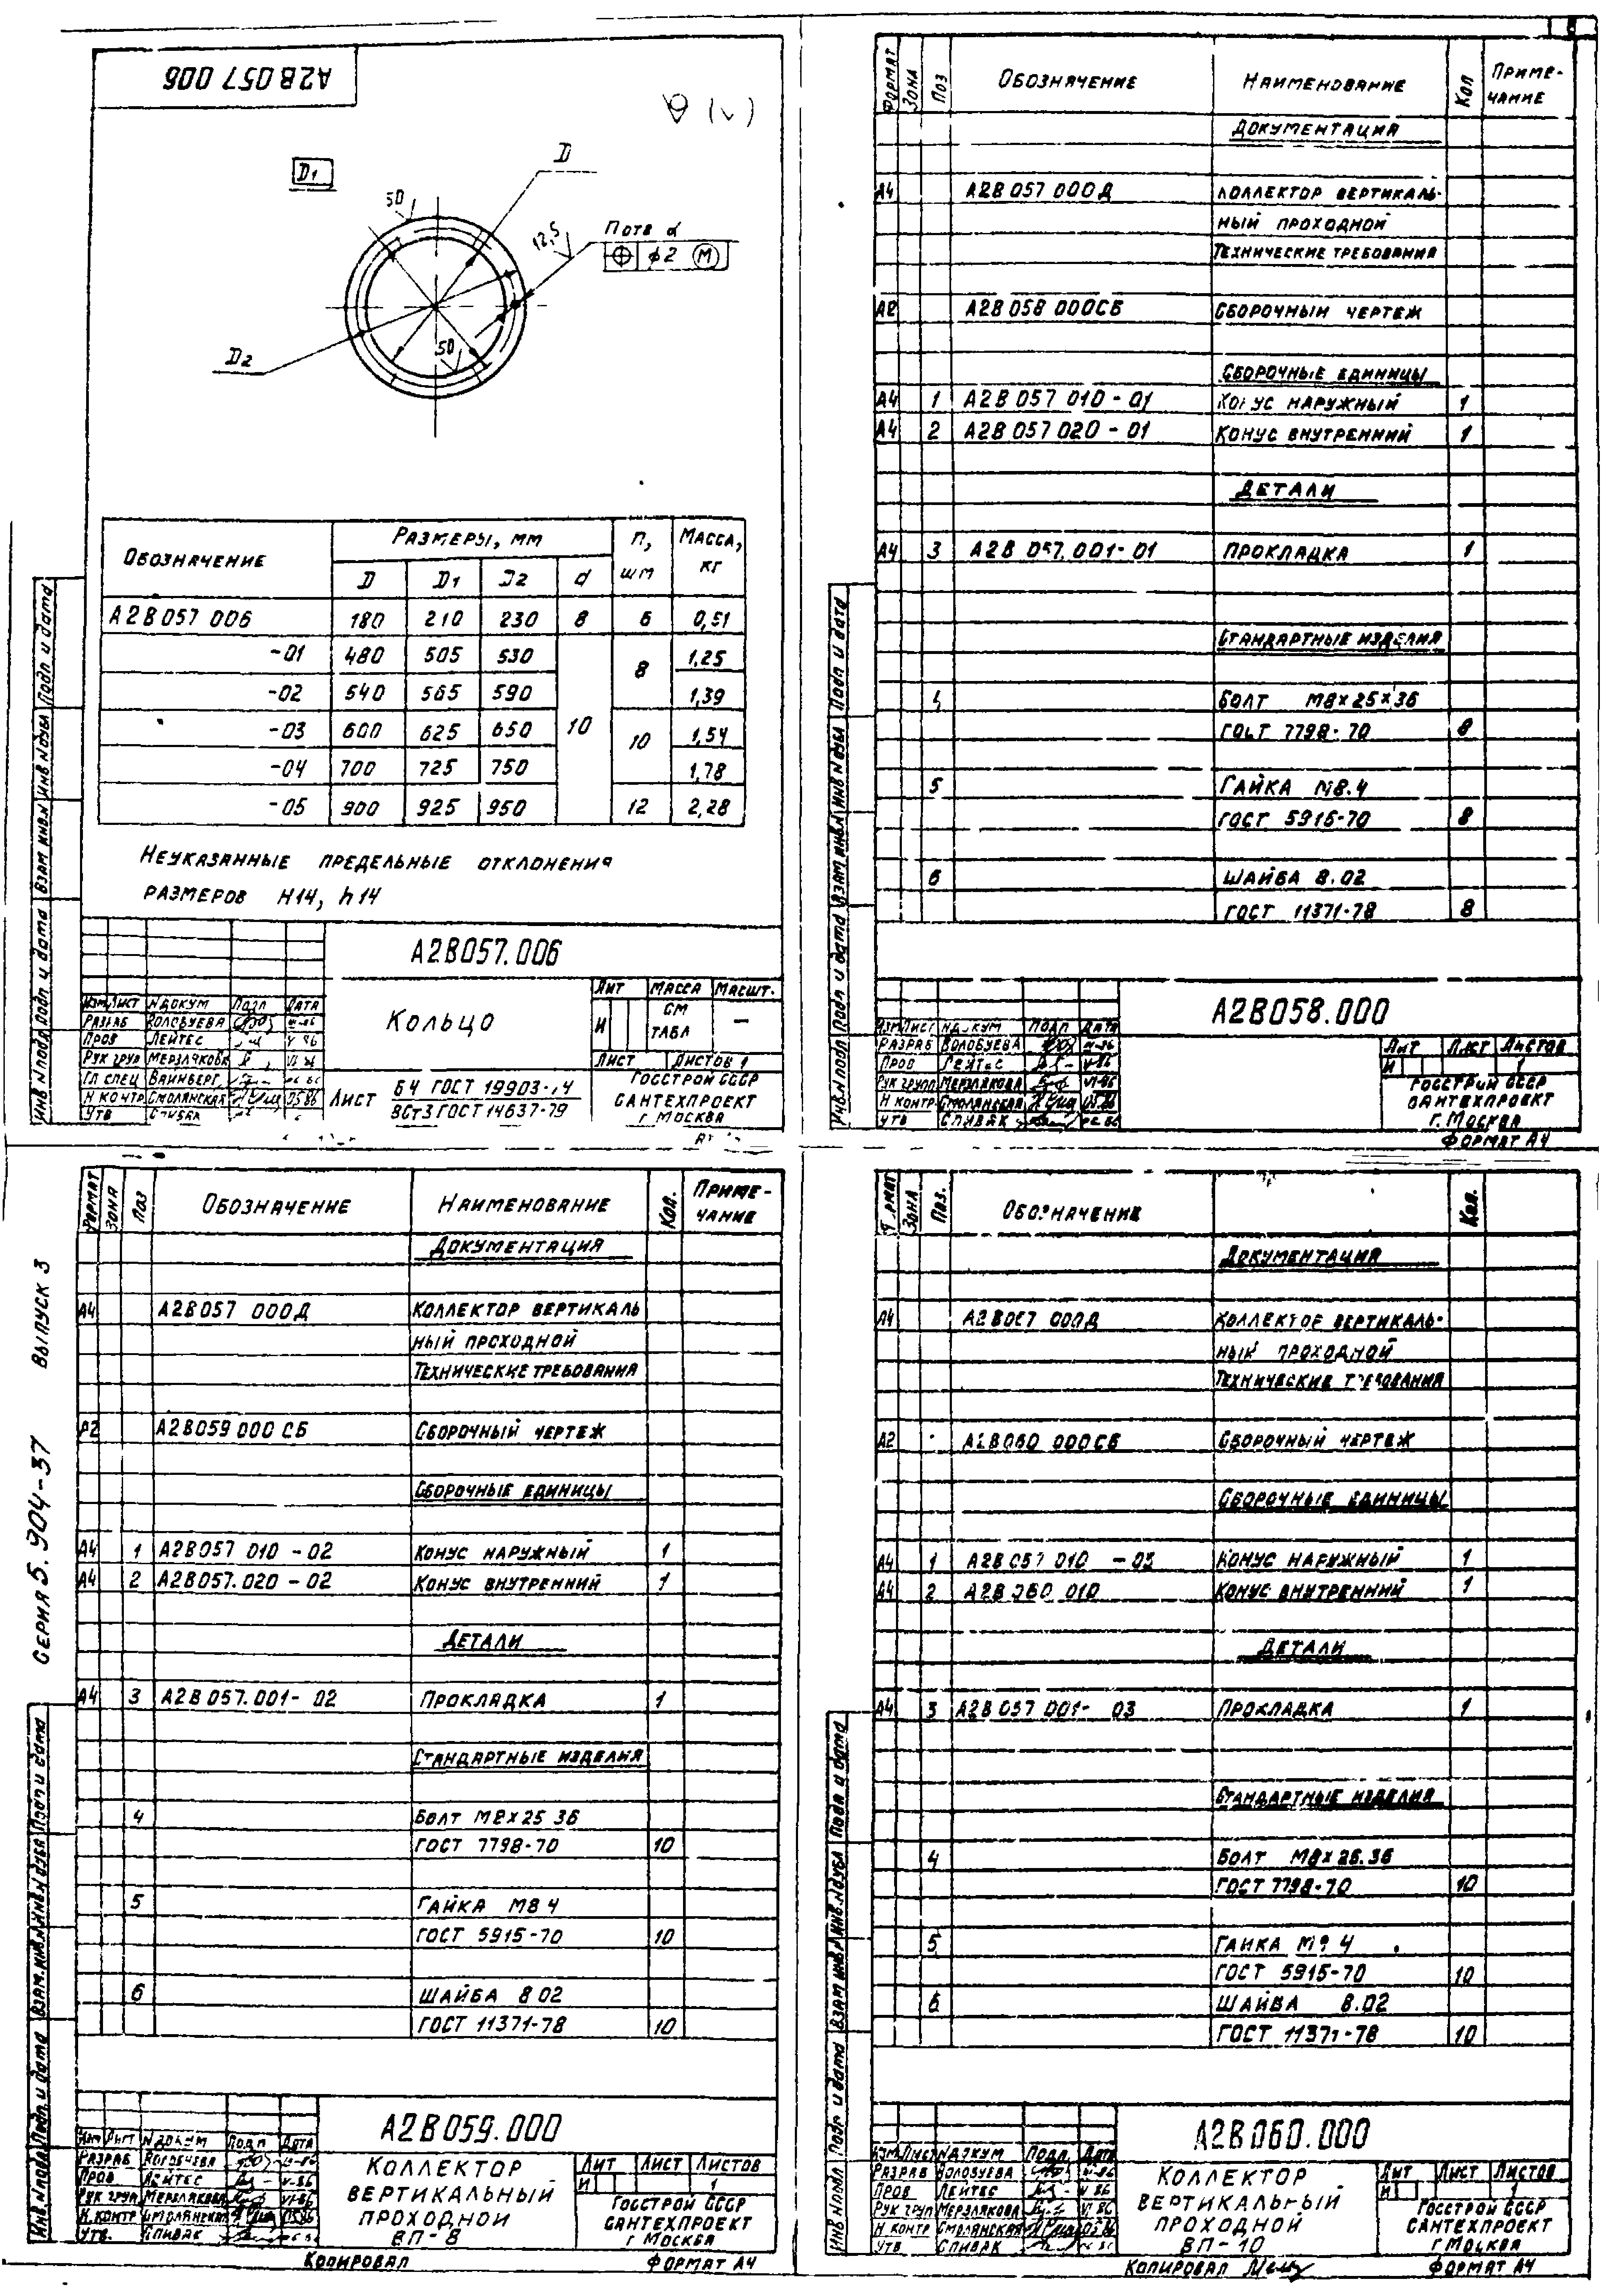 А2В057 006
∇ (√)
D1
D
50
12,5
n отв d
⌖ ϕ2 Ⓜ
D2
50
Обозначение Размеры, мм n, шт Масса, кг
D D1 D2 d
А2В057 006 180 210 230 8 6 0,51
-01 480 505 530 8 1,25
-02 540 565 590 1,39
-03 600 625 650 10 10 1,54
-04 700 725 750 1,78
-05 900 925 950 12 2,28
Неуказанные предельные отклонения
размеров H14, h14
А2В057.006
Кольцо
Лит Масса Масшт.
И см табл —
Лист Листов 1
Изм Лист N докум Подп Дата
Разраб Волобуева
Пров Лейтес
Рук груп Мерзлякова
Гл спец Вайнберг
Н контр Смолянская
Утв Спивак
Лист Б4 ГОСТ 19903-74
ВСт3 ГОСТ 14637-79
Госстрой СССР
Сантехпроект
г Москва
Инв N подл Подп и дата Взам инв.N Инв N дубл Подп и дата
Формат Зона Поз Обозначение Наименование Кол Приме-
чание
Документация
А4 А2В057 000Д Коллектор вертикаль-
ный проходной
Технические требования
А2 А2В058 000СБ Сборочный чертеж
Сборочные единицы
А4 1 А2В057 010-01 Конус наружный 1
А4 2 А2В057 020-01 Конус внутренний 1
Детали
А4 3 А2В 057.001-01 Прокладка 1
Стандартные изделия
4 Болт М8×25×36
ГОСТ 7798-70 8
5 Гайка М8.4
ГОСТ 5915-70 8
6 Шайба 8.02
ГОСТ 11371-78 8
А2В058.000
Изм Лист N докум Подп Дата
Разраб Волобуева
Пров Лейтес
Рук групп Мерзлякова
Н контр Смолянская
Утв Спивак
Лит Лист Листов
И 1
Госстрой СССР
Сантехпроект
г. Москва
Формат А4
Инв.N подл Подп и дата Взам инв.N Инв N дубл Подп и дата
Серия 5.904-37 Выпуск 3
Формат Зона Поз Обозначение Наименование Кол. Приме-
чание
Документация
А4 А2В057 000Д Коллектор вертикаль
ный проходной
Технические требования
А2В059 000 СБ Сборочный чертеж
Сборочные единицы
А4 1 А2В057 010 -02 Конус наружный 1
А4 2 А2В057.020 -02 Конус внутренний 1
Детали
А4 3 А2В057.001- 02 Прокладка 1
Стандартные изделия
4 Болт М8×25 36
ГОСТ 7798-70 10
5 Гайка М8 4
ГОСТ 5915-70 10
6 Шайба 8 02
ГОСТ 11371-78 10
А2В059.000
Изм Лист N докум Подп Дата
Разраб Волобуева
Пров Лейтес
Рук груп Мерзлякова
Н.контр Смолянская
Утв. Спивак
Коллектор
вертикальный
проходной
ВП-8
Лит Лист Листов
И 1
Госстрой СССР
Сантехпроект
г Москва
Копировал Формат А4
Инв.N подл Подп. и дата Взам.инв.N Инв.N дубл Подп и дата
Формат Зона Поз. Обозначение Кол.
Документация
А4 А2В057 000Д Коллектор вертикаль-
ный проходной
Технические требования
А2 А2В060 000СБ Сборочный чертеж
Сборочные единицы
А4 1 А2В 057 010 -03 Конус наружный 1
А4 2 А2В 060 010 Конус внутренний 1
Детали
А4 3 А2В 057 001- 03 Прокладка 1
Стандартные изделия
4 Болт М8×25.36
ГОСТ 7798-70 10
5 Гайка М8 4
ГОСТ 5915-70 10
6 Шайба 8.02
ГОСТ 11371-78 10
А2В060.000
Изм. Лист N докум Подп. Дата
Разраб Волобуева
Пров Лейтес
Рук груп Мерзлякова
Н контр Смолянская
Утв Спивак
Коллектор
вертикальный
проходной
ВП-10
Лит Лист Листов
И 1
Госстрой СССР
Сантехпроект
г Москва
Копировал Формат А4
Инв N подл Подп и дата Взам инв.N Инв.N дубл Подп и дата